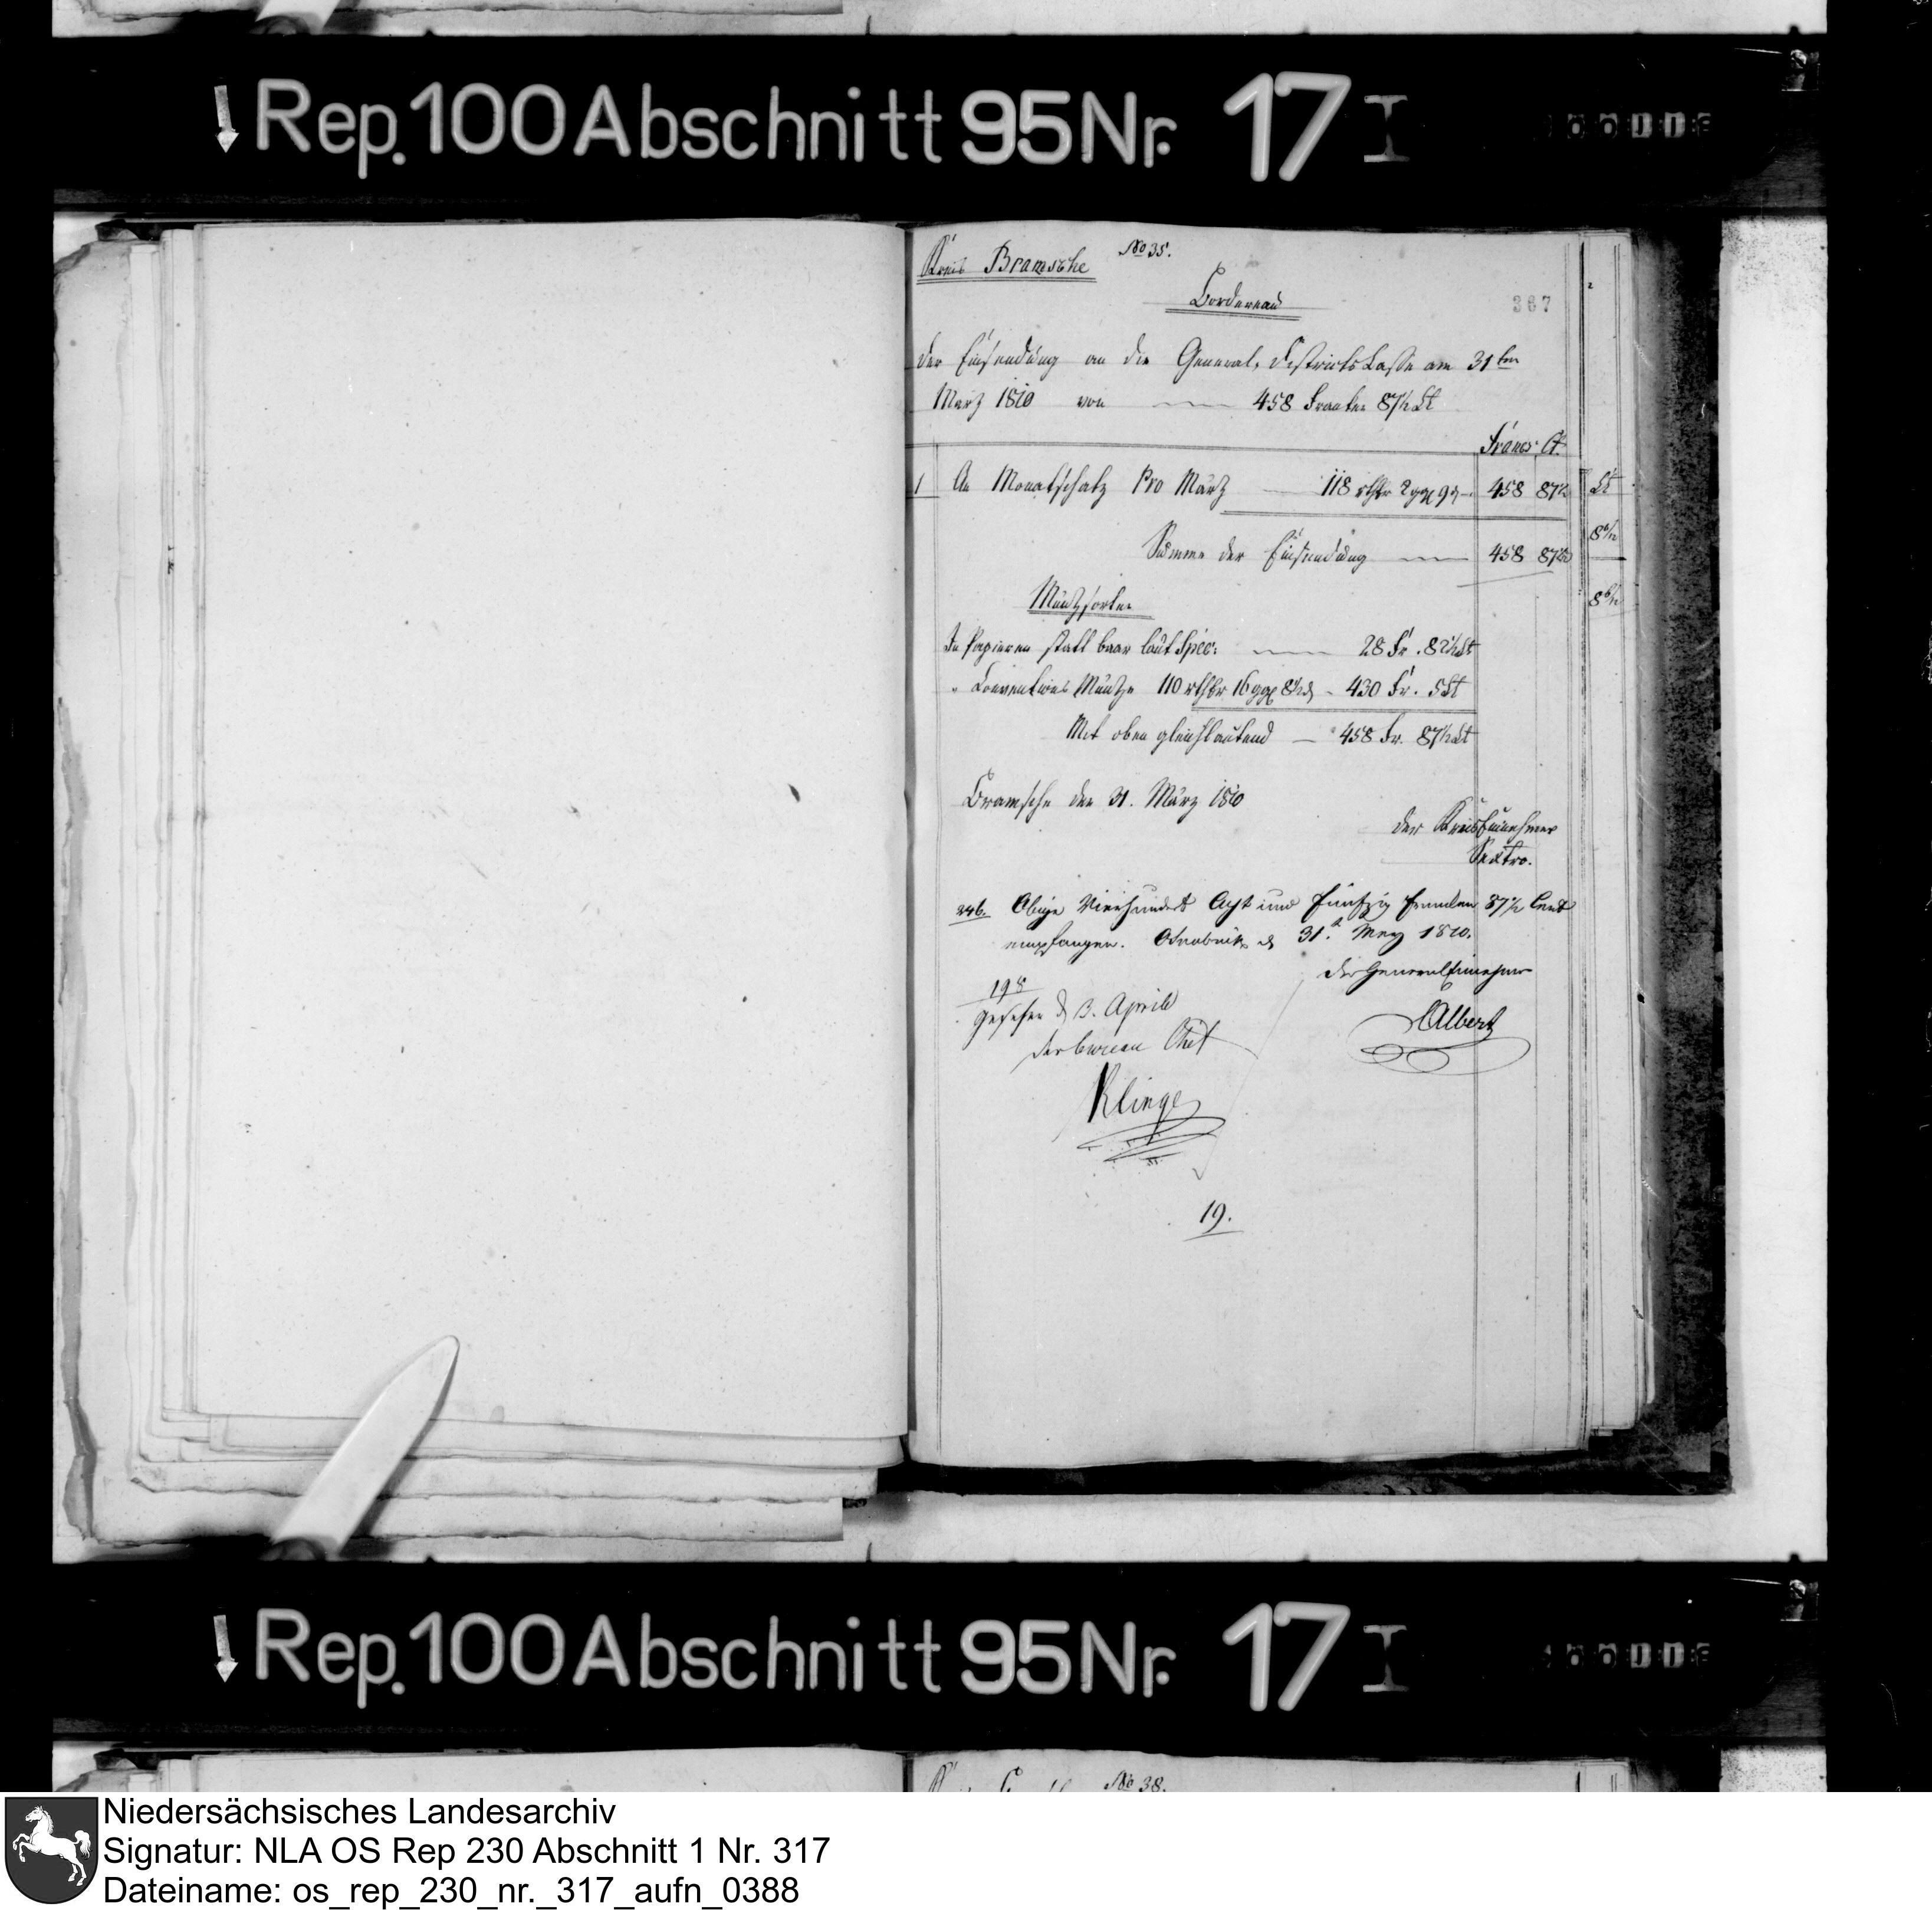 ↓ Rep. 100 Abschnitt 95 Nr. 17 I
Kreis Bramsche No 35.
Bordereau
367
der Einsendung an die General, Districts Casse am 31ten
März 1810 von — 458 Franken 87½ Ct
Francs. Ct.
1 An Monatschatz Pro März — 118 rthlr 2 ggl 9 ₰ — 458 87½
Summe der Einsendung — 458 87½
Müntzsorten
In Papieren statt baar laut Spec: — 28 Fr. 82½ Ct
" Conventions Müntze 110 rthlr 16 ggl 8½ ₰ - 430 Fr. 5 Ct
Mit oben gleichlautend — 458 Fr. 87½ Ct
Bramsche den 31. März 1810
der Kreis Einnehmer
Sextro.
246. Obige Vierhundert Acht und Fünfzig Franken 87½ Cent
empfangen. Osnabrück d 31.t Merz 1810.
der General Einnehmer
Albert
198
Gesehen d 3. April
der bureau Chef
Klinge
19.
Ct
8½
8½
↓ Rep. 100 Abschnitt 95 Nr. 17 I
No 38.
Niedersächsisches Landesarchiv
Signatur: NLA OS Rep 230 Abschnitt 1 Nr. 317
Dateiname: os_rep_230_nr._317_aufn_0388